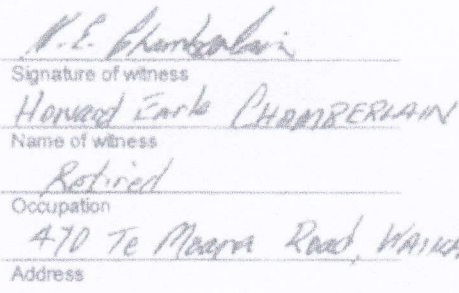 H.E. Chamberlain
Signature of witness
Howard Earle CHAMBERLAIN
Name of witness
Retired
Occupation
470 Te Road, WAIKA
Address